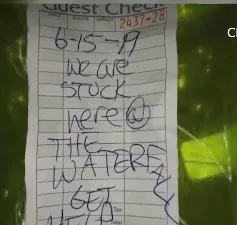 Guest Check
2437-28
6-15-19
We are
STUCK
here @
THE
WATERFALL
GET
HELP